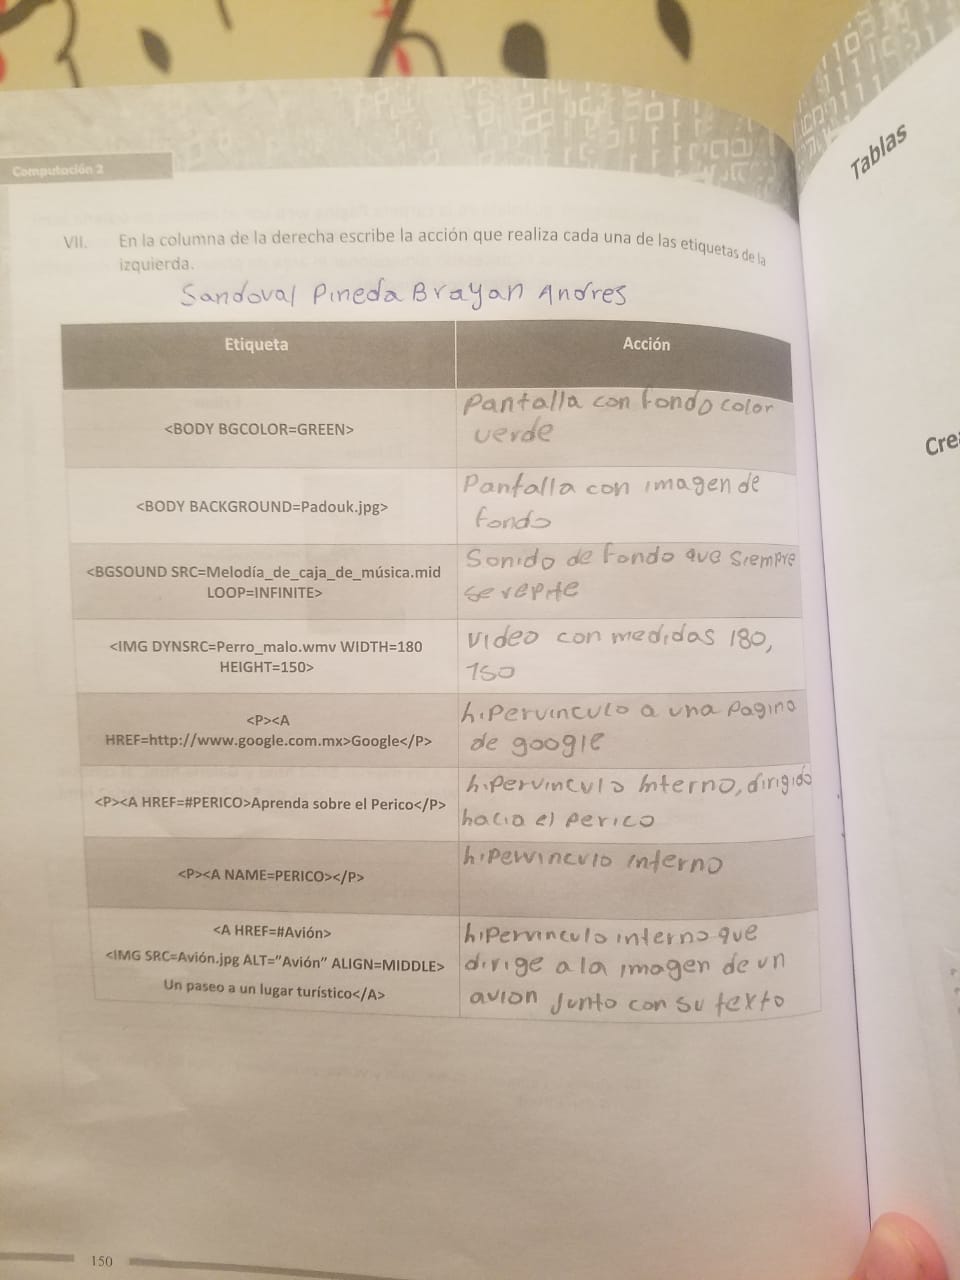 Computación 2
Tablas
VII. En la columna de la derecha escribe la acción que realiza cada una de las etiquetas de la
izquierda.
Sandoval Pineda Brayan Andres
Etiqueta
Acción
<BODY BGCOLOR=GREEN>
Pantalla con fondo color
verde
<BODY BACKGROUND=Padouk.jpg>
Pantalla con imagen de
fondo
<BGSOUND SRC=Melodía_de_caja_de_música.mid
LOOP=INFINITE>
Sonido de fondo que siempre
se repite
<IMG DYNSRC=Perro_malo.wmv WIDTH=180
HEIGHT=150>
video con medidas 180,
150
<P><A
HREF=http://www.google.com.mx>Google</P>
hipervinculo a una pagina
de google
<P><A HREF=#PERICO>Aprenda sobre el Perico</P>
hipervinculo interno, dirigido
hacia el perico
<P><A NAME=PERICO></P>
hipervinculo interno
<A HREF=#Avión>
<IMG SRC=Avión.jpg ALT="Avión" ALIGN=MIDDLE>
Un paseo a un lugar turístico</A>
hipervinculo interno que
dirige a la imagen de un
avion junto con su texto
150